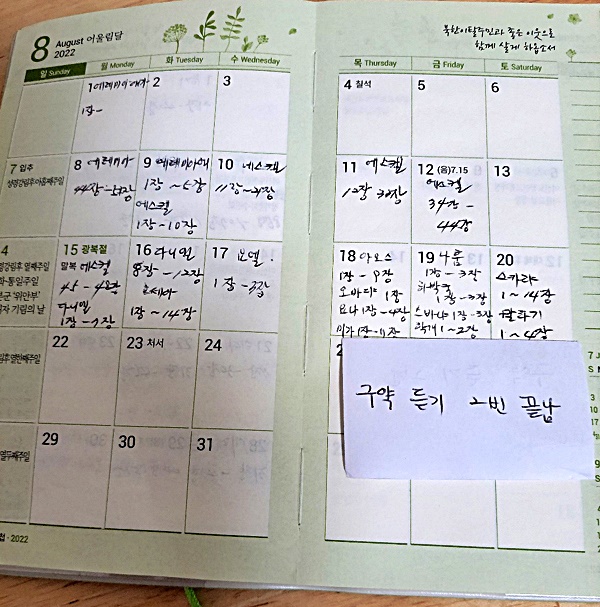 8 August 어울림달
2022
북한이탈주민과 좋은 이웃으로
함께 살게 하옵소서
일 Sunday
월 Monday
화 Tuesday
수 Wednesday
목 Thursday
금 Friday
토 Saturday
1 예레미야
1장-
2
3
4 칠석
5
6
7 입추
8 예레미야
9 예레미야애가
1장 ~ 5장
에스겔
1장 ~ 10장
10 에스겔
11장
11 에스겔
12 (음)7.15
에스겔
34장 -
44장
13
4
15 광복절
말복 에스겔
다니엘
16 다니엘
8장 - 12장
호세아
1장 ~ 14장
17 요엘
1장 - 3장
18 아모스
1장 - 9장
오바댜 1장
요나 1장 - 4장
19 나훔
1장 - 3장
하박국
1장 - 3장
스바냐 1장 - 3장
학개 1 ~ 2장
20
스가랴
1 ~ 14장
말라기
1 ~ 4장
22
23 처서
24
구약 듣기 2번 끝남
29
30
31
2022